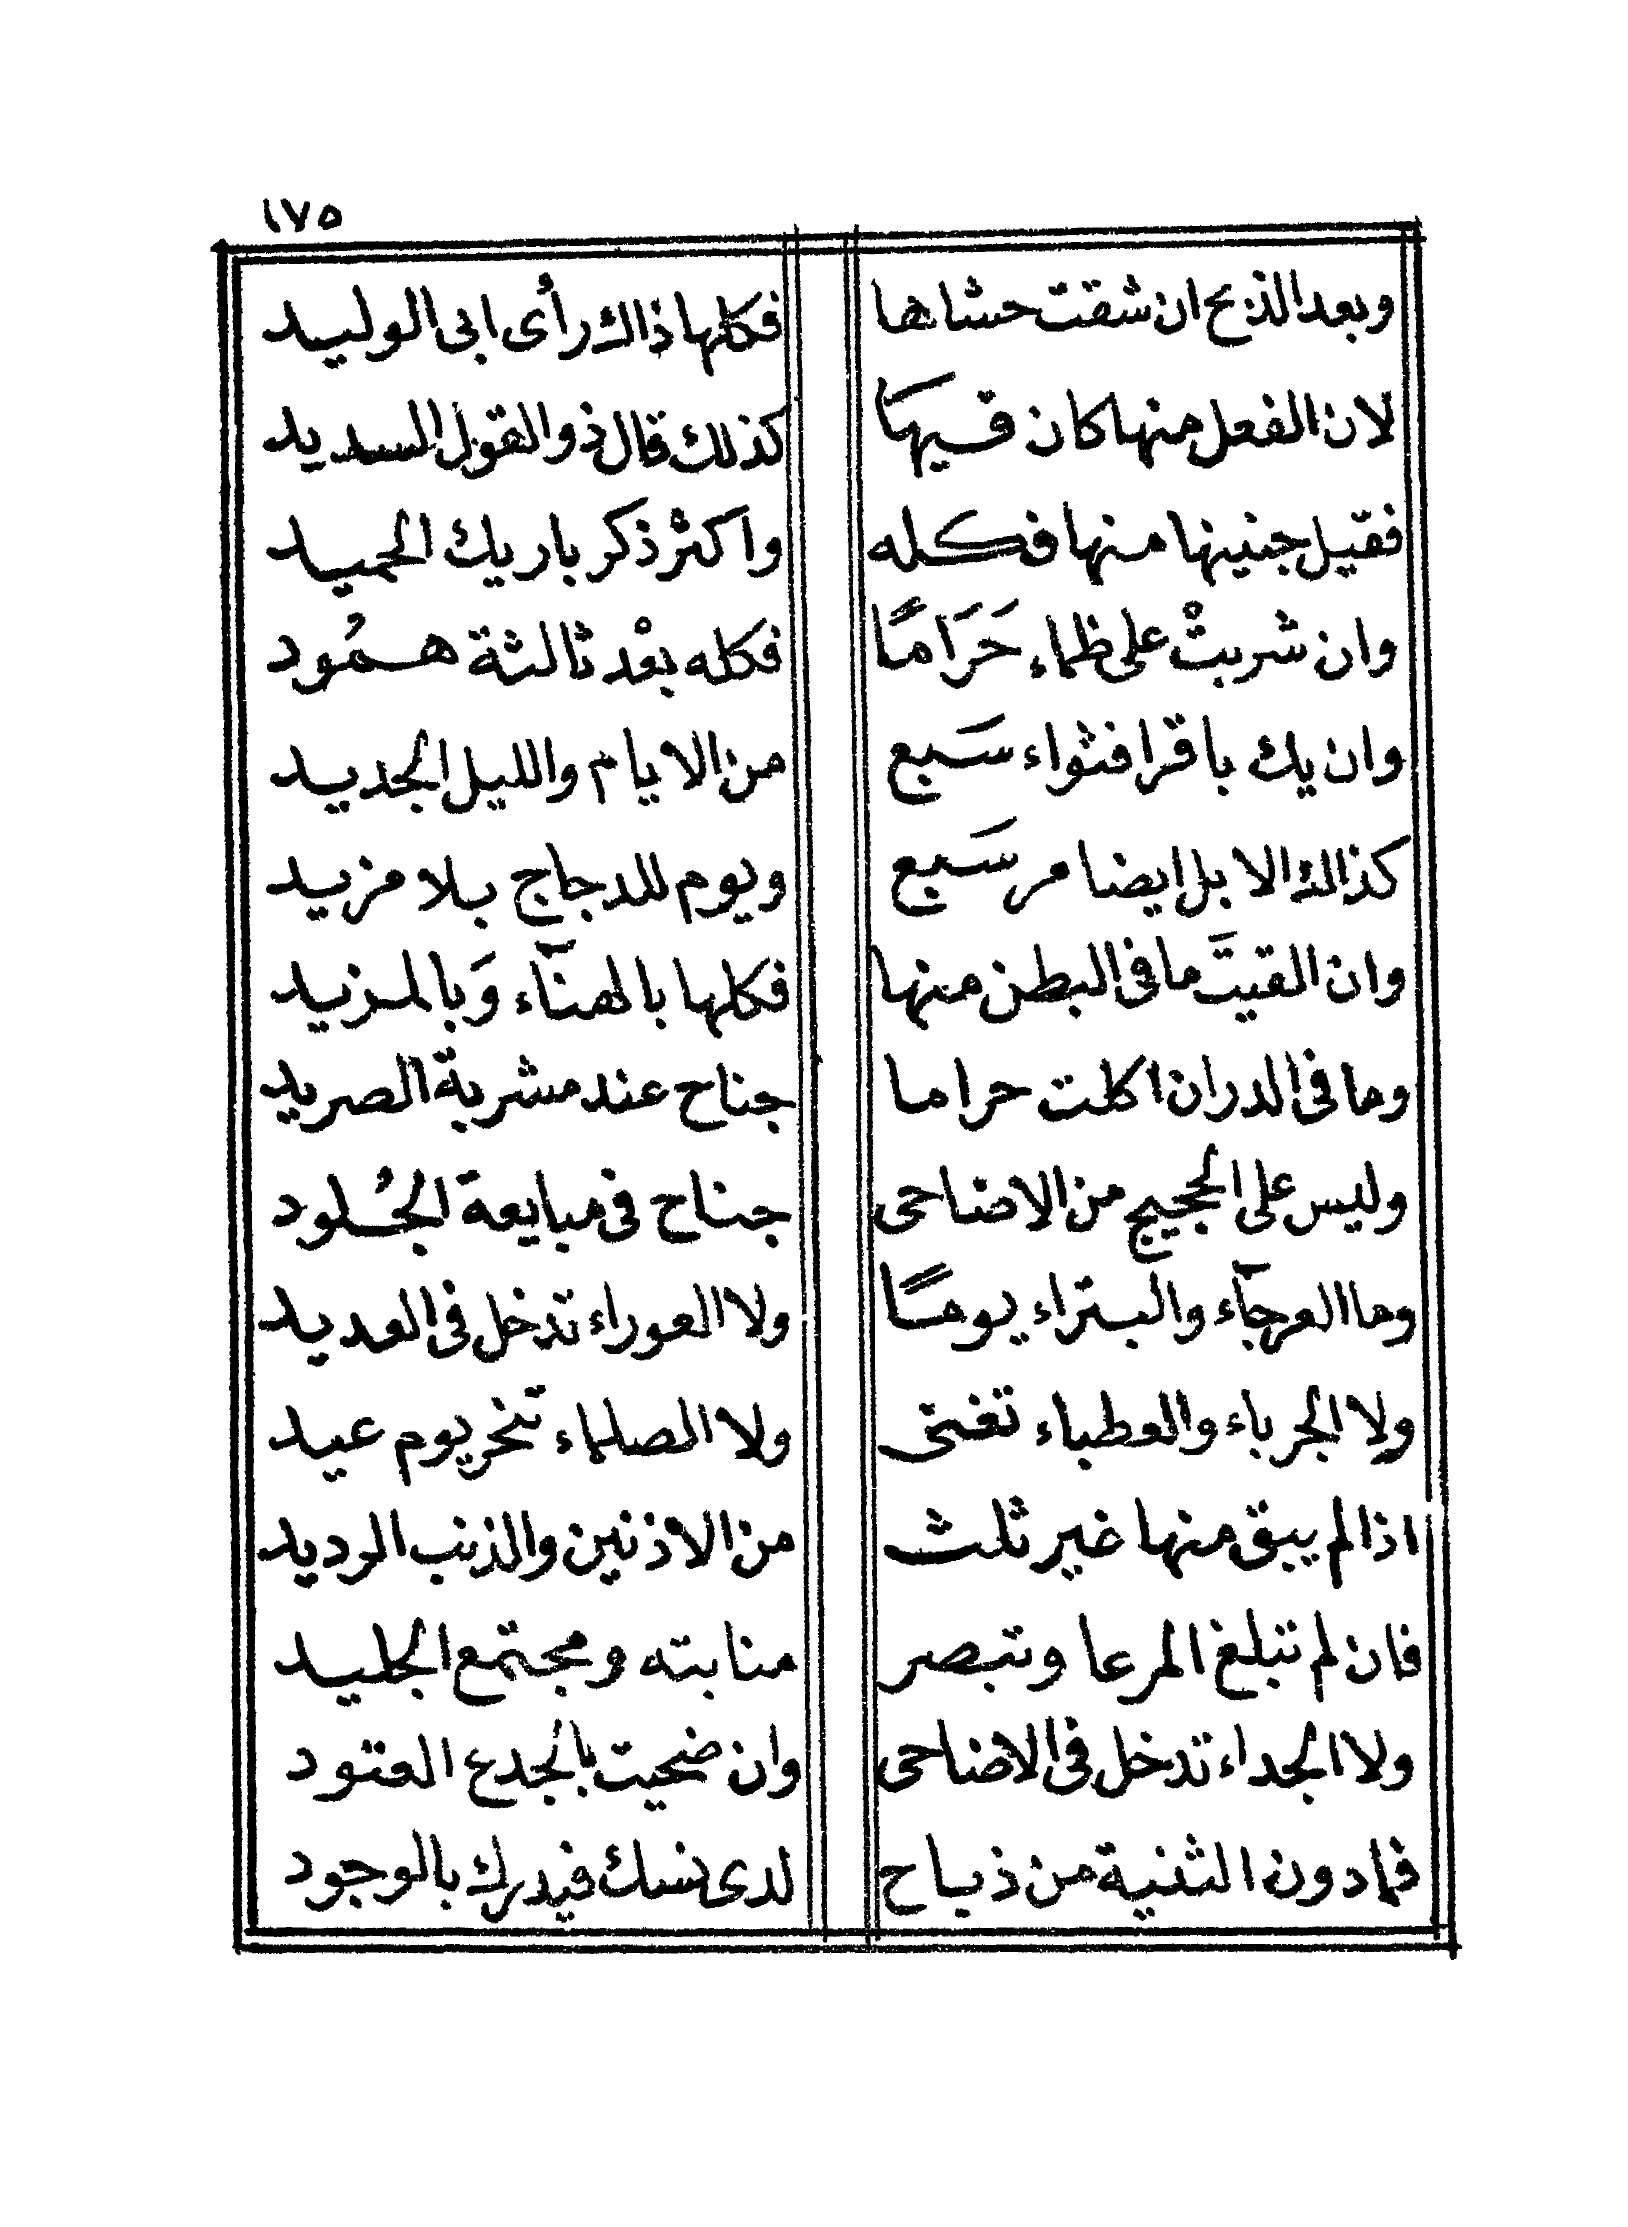 ١٧٥
وبعد الذبح ان شقت حشاها فكلها ذاك رأى ابى الوليد
لان الفعل منها كان فيها كذلك قال ذو القول السديد
فقيل جنينها منها فكله واكثر ذكر باريك الحميد
وان شربتْ على ظماء حَرَامًا فكله بعْد ثالثة همُود
وان يك باقرا فثواء سَبع من الايام والليل الجديد
كذاك الابل ايضا مر سَبع ويوم للدجاج بلا مزيد
وان القيتَ ما فى البطن منها فكلها بالهنآء وَبالمزيد
وما فى الدران اكلت حراما جناح عند مشربة الصريد
وليس على الحجيج من الاضاحى جناح فى مبايعة الجُلود
وما العرجآء والبتراء يومًا ولا العوراء تدخل فى العديد
ولا الجرباء والعطباء تغنى ولا الصلماء تنحر يوم عيد
اذا لم يبق منها غير ثلث من الاذنين والذنب الرديد
فان لم تبلغ المرعا وتبصر منابته ومجتمع الجليد
ولا الجداء تدخل فى الاضاحى وان ضحيت بالجدع العتود
فما دون الثنية من ذباح لدى نسك فيدرك بالوجود